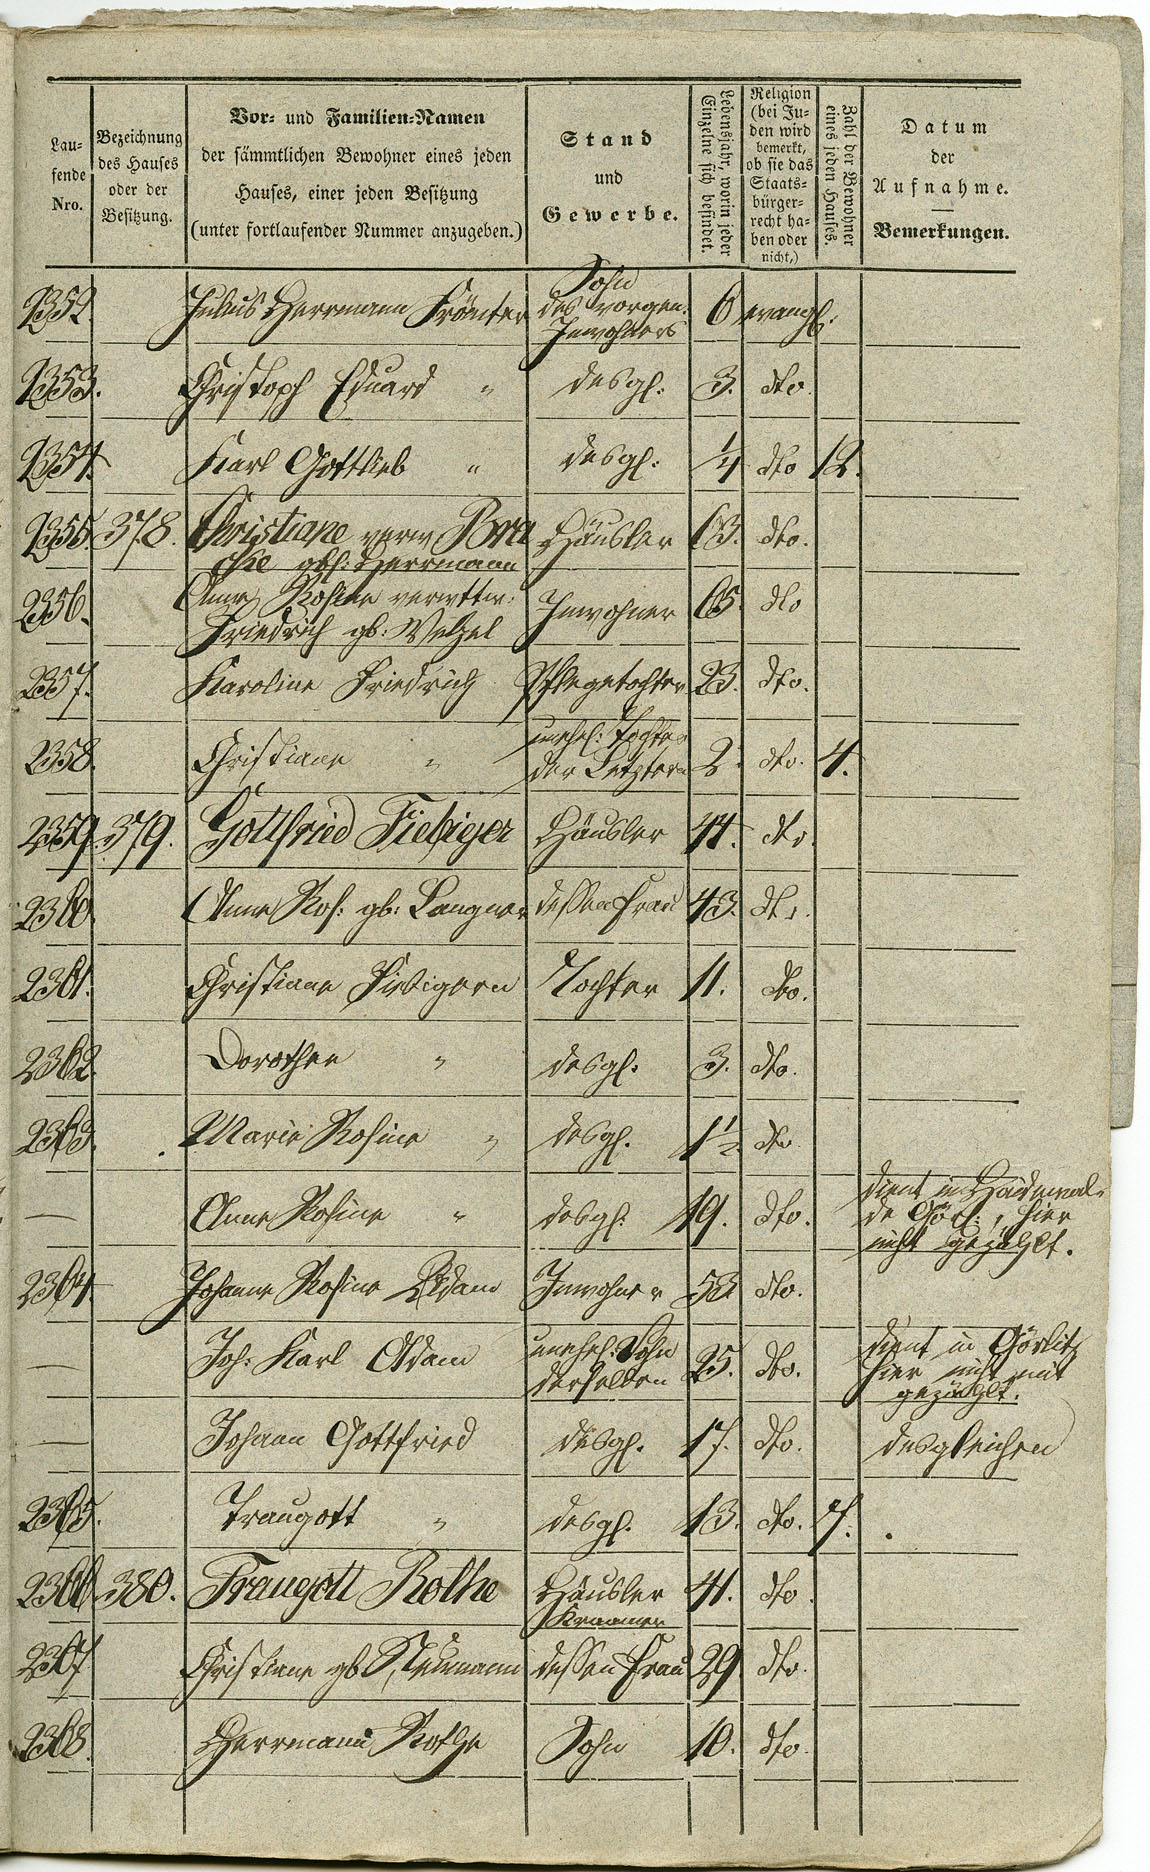 Lau-
fende
Nro.
Bezeichnung
des Hauses
oder der
Besitzung.
Vor- und Familien-Namen
der sämmtlichen Bewohner eines jeden
Hauses, einer jeden Besitzung
(unter fortlaufender Nummer anzugeben.)
Stand
und
Gewerbe.
Lebensjahr, worin jeder
Einzelne sich befindet.
Religion
(bei Ju-
den wird
bemerkt,
ob sie das
Staats-
bürger-
recht ha-
ben oder
nicht.)
Zahl der Bewohner
eines jeden Hauses.
Datum
der
Aufnahme.
Bemerkungen.
Sohn
2352. Julius Herrmann Frömter des vorgen. 6 evangl.
Inwohners
2353. Christoph Eduard " desgl. 3. dto.
2354. Karl Gottlieb " desgl. 1/4 dto 12.
2355. 378. Christiane verw. Bra Häusler 63. dto.
cke geb: Herrmann
2356. Anna Rosine verwttw. Inwohner 65. dto
Friedrich gb: Wetzel
2357. Karoline Friedrich Pflegetochter 23. dto.
2358. Christiane " unehel: Tochter 2. dto. 4.
der Letztern
2359. 379. Gottfried Fiebiger Häusler 44. dto.
2360. Anne Ros: gb: Langner dessen Frau 43. dto.
2361. Christiane Fiebigern Tochter 11. dto.
2362. Dorothee " desgl. 3. dto.
2363. Marie Rosine " desgl. 1 1/2 dto
— Anne Rosine " desgl. 19. dto. dient in
hier
nicht gezählt.
2364. Johanne Rosine Adam Inwohner 53 dto.
— Joh: Karl Adam unehel: Sohn 25. dto. dient in Görlitz
derselben hier nicht mit
gezählt.
— Johann Gottfried desgl. 17. dto. desgleichen
2365. Traugott " desgl. 13. dto. 7.
2366 380. Traugott Rothe Häusler 41. dto.
Kraamer
2367 Christiane gb Neumann dessen Frau 29 dto.
2368. Herrmann Rothe Sohn 10. dto.